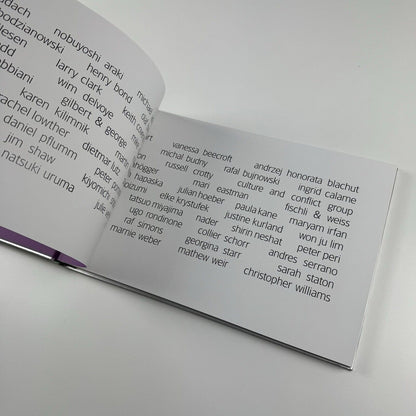 nobuyoshi araki
bodzianowski henry bond
larry clark keith
wim delvoye
gilbert & george
karen kilimnik
rachel lowther dietmar lutz
daniel pflumm peter
jim shaw
natsuki uruma
vanessa beecroft andrzej honorata blachut
michal budny rafal bujnowski ingrid calame
russell crotty culture and conflict group
mari eastman fischli & weiss
napaska julian hoeber paula kane maryam irfan
elke krystufek justine kurland won ju lim
tatsuo miyajima nader shirin neshat peter peri
ugo rondinone collier schorr andres serrano
raf simons georgina starr sarah staton
marnie weber mathew weir christopher williams